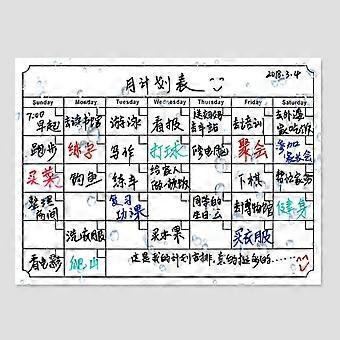 月计划表
2018.3.4
Sunday Monday Tuesday Wednesday Thursday Friday Saturday
7:00 早起 去读书馆 游泳 看报 去培训 去外婆家吃饭
跑步 练字 写作 打球 修电脑 聚会 参加家长会
买菜 钓鱼 练车 给家人做一顿饭 下棋 打扫家务
整理房间 复习功课 同学的生日会 去博物馆 健身
洗衣服 买水果 买衣服
看电影 爬山 这是我的计划安排,真的挺多的……